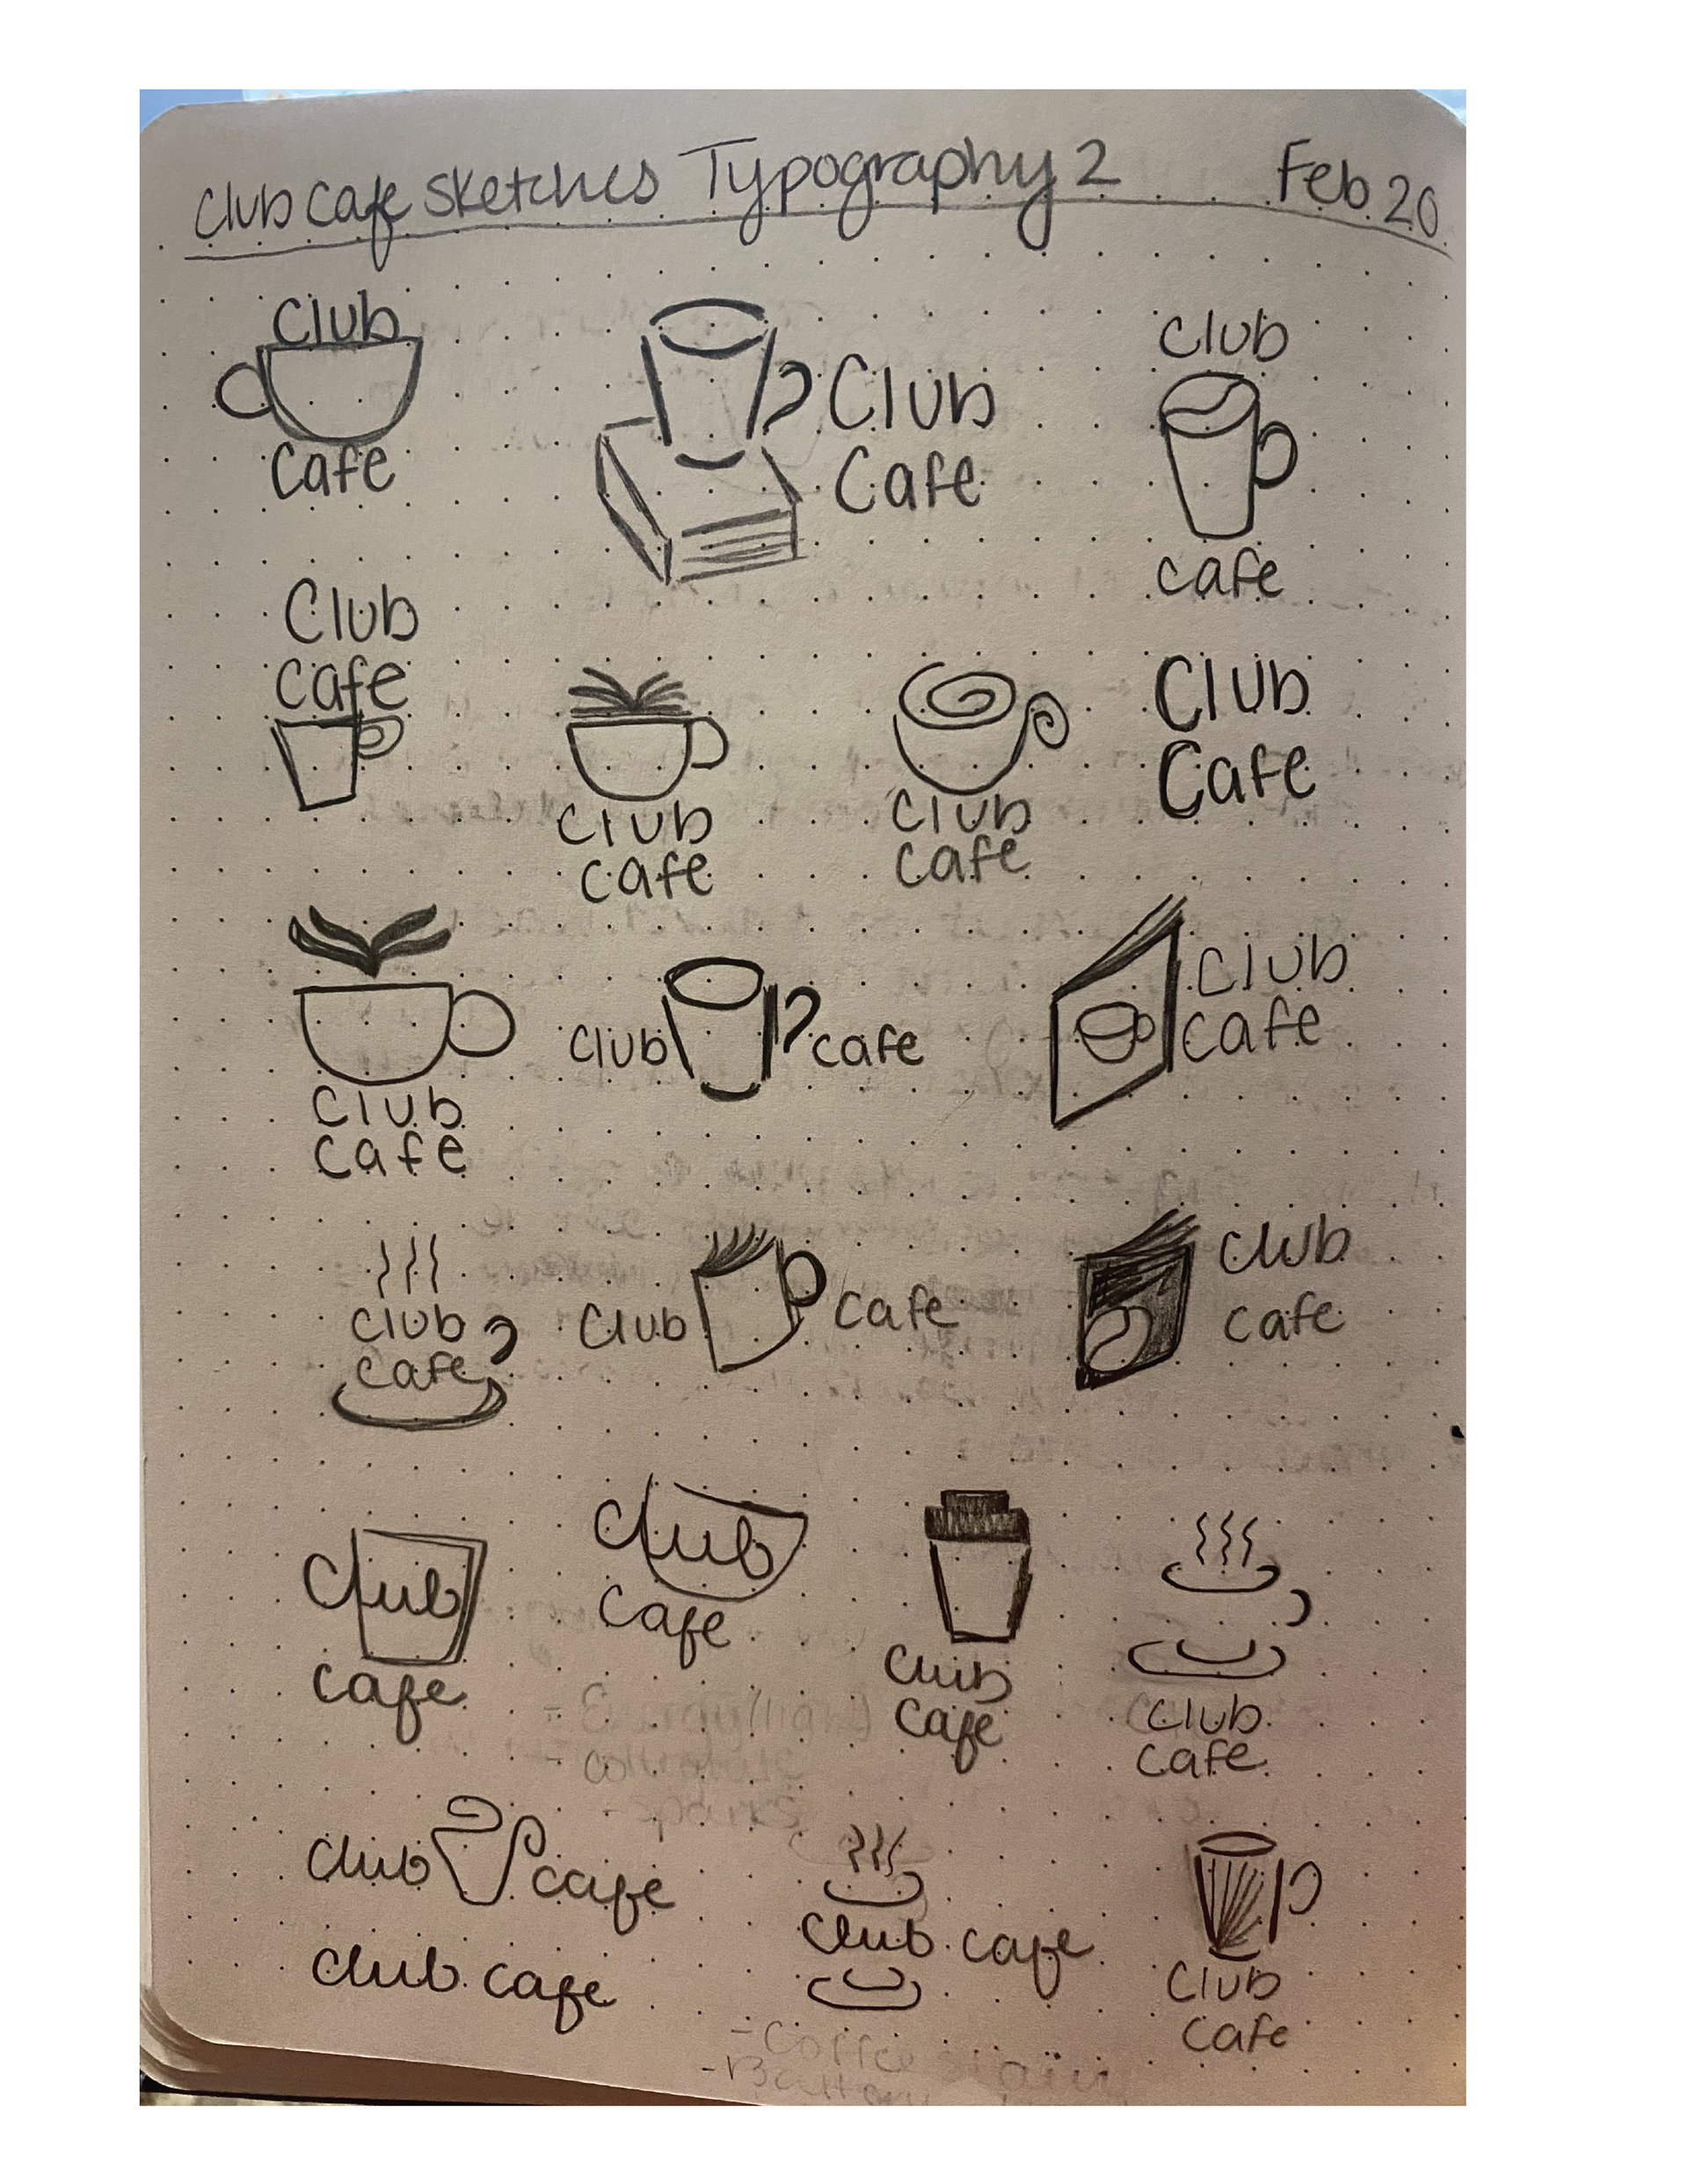 Club Cafe Sketches Typography 2 Feb 20
Club
Cafe
Club
Cafe
Club
cafe
Club
cafe
Club
cafe
Club
cafe
Club
Cafe
Club
cafe
Club cafe
Club
cafe
Club
cafe
Club cafe
Club
cafe
Club
cafe
Club
Cafe
Club
Cafe
Club
cafe
Club cafe
Club cafe
Club cafe
Club
cafe
-Coffee